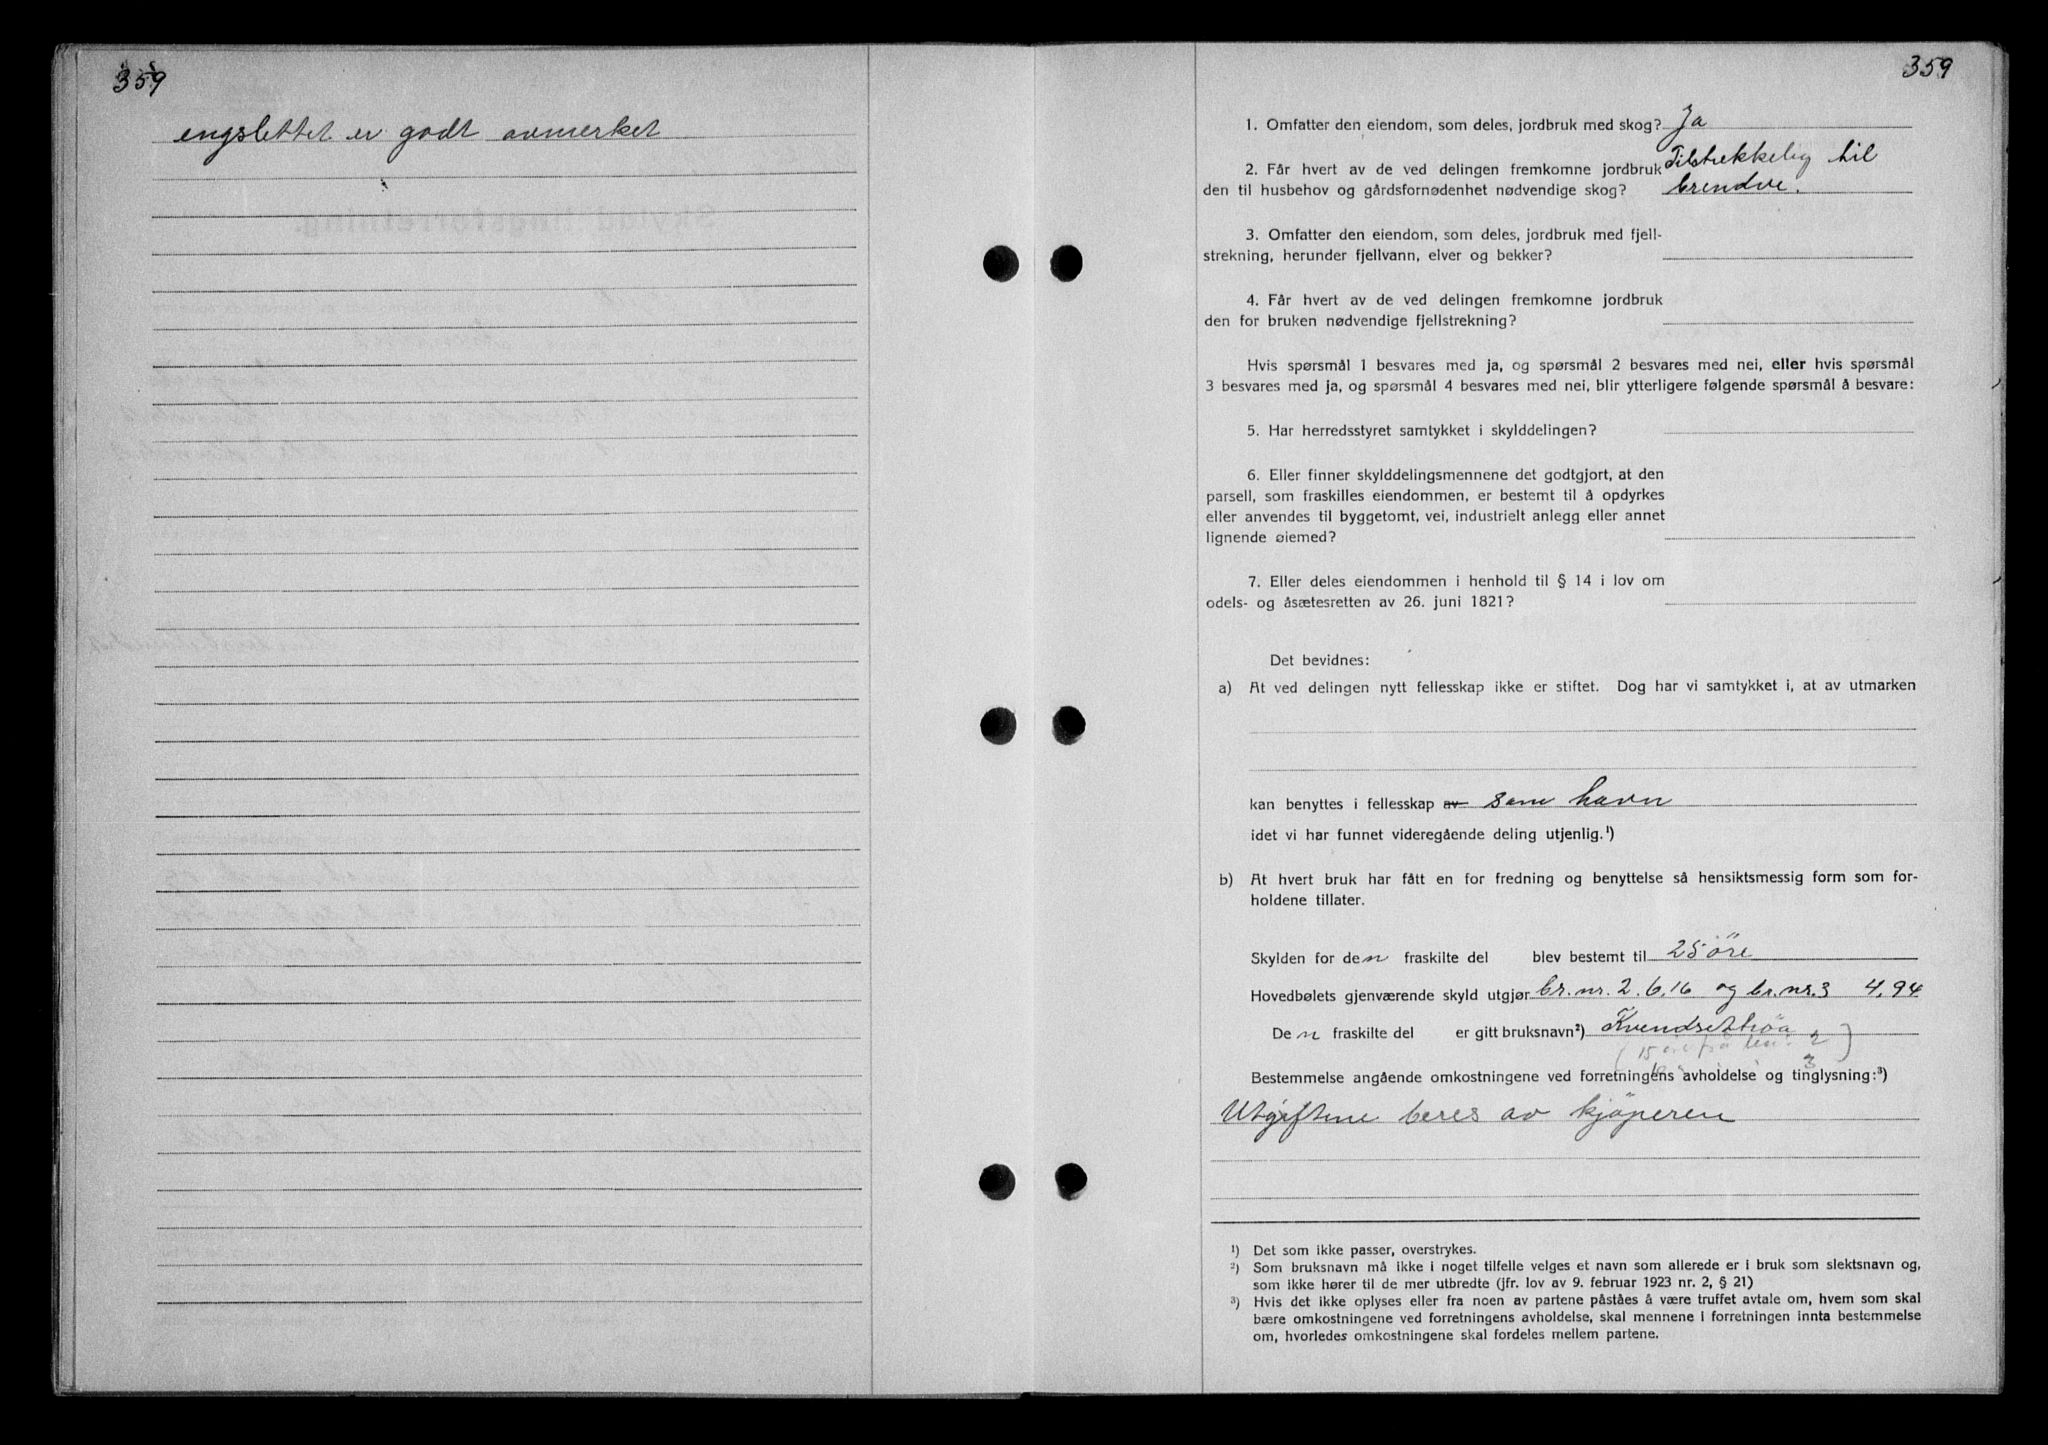 359
engslettet er godt avmerket
359
1. Omfatter den eiendom, som deles, jordbruk med skog? Ja
2. Får hvert av de ved delingen fremkomne jordbruk Tilstrekkelig til
den til husbehov og gårdsfornødenhet nødvendige skog? brendve.
3. Omfatter den eiendom, som deles, jordbruk med fjell-
strekning, herunder fjellvann, elver og bekker?
4. Får hvert av de ved delingen fremkomne jordbruk
den for bruken nødvendige fjellstrekning?
Hvis spørsmål 1 besvares med ja, og spørsmål 2 besvares med nei, eller hvis spørsmål
3 besvares med ja, og spørsmål 4 besvares med nei, blir ytterligere følgende spørsmål å besvare:
5. Har herredsstyret samtykket i skylddelingen?
6. Eller finner skylddelingsmennene det godtgjort, at den
parsell, som fraskilles eiendommen, er bestemt til å opdyrkes
eller anvendes til byggetomt, vei, industrielt anlegg eller annet
lignende øiemed?
7. Eller deles eiendommen i henhold til § 14 i lov om
odels- og åsætesretten av 26. juni 1821?
Det bevidnes:
a) At ved delingen nytt fellesskap ikke er stiftet. Dog har vi samtykket i, at av utmarken
kan benyttes i fellesskap av som havn
idet vi har funnet videregående deling utjenlig.¹)
b) At hvert bruk har fått en for fredning og benyttelse så hensiktsmessig form som for-
holdene tillater.
Skylden for den fraskilte del blev bestemt til 25 öre
Hovedbølets gjenværende skyld utgjør br. nr. 2. 6,16 og br. nr. 3 4,94
Den fraskilte del er gitt bruksnavn²) Kvendsethöa
(15 öre fra bnr. 2)
10 " " " 3
Bestemmelse angående omkostningene ved forretningens avholdelse og tinglysning:³)
Utgiftene beres av kjöperen
¹) Det som ikke passer, overstrykes.
²) Som bruksnavn må ikke i noget tilfelle velges et navn som allerede er i bruk som slektsnavn og,
som ikke hører til de mer utbredte (jfr. lov av 9. februar 1923 nr. 2, § 21)
³) Hvis det ikke oplyses eller fra noen av partene påståes å være truffet avtale om, hvem som skal
bære omkostningene ved forretningens avholdelse, skal mennene i forretningen innta bestemmelse
om, hvorledes omkostningene skal fordeles mellem partene.